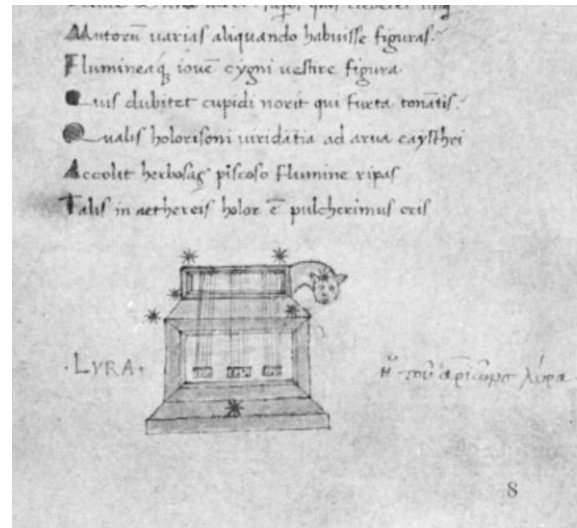 Mutorū varias aliquando habuisse figuras.
Flumineaq; iouē cygni uestire figura
Quis dubitet cupidi norit qui furta tonātis.
Qualis holorisoni uiridātia ad arua caysthri
Accolit herbosas piscoso flumine ripas
Talis in aethereis holor ē pulcherimus oris
·LYRA·
λύρα
8